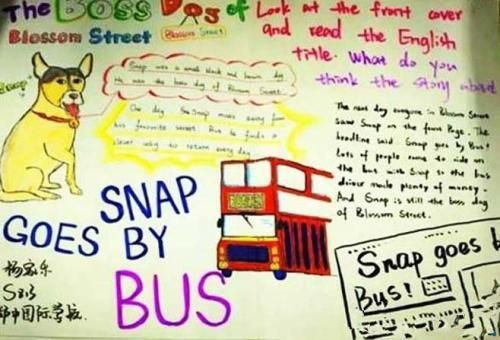 The Boss Dog of
Blossom Street
Blossom Street
Look at the front cover
and read the English
title. What do you
think the story about
Snap
Snap was a small black and brown dog.
He was the boss dog of Blossom Street.
One day Snap moves away from
his favourite street. But he finds a
clever way to return every day.
The next day everyone in Blossom Street
saw Snap on the front page. The
headline said Snap goes by Bus!
lots of people came to ride on
the bus with Snap so the bus
driver made plenty of money.
And Snap is still the boss dog
of Blossom Street.
SNAP
GOES BY
BUS
Snap goes b
Bus!